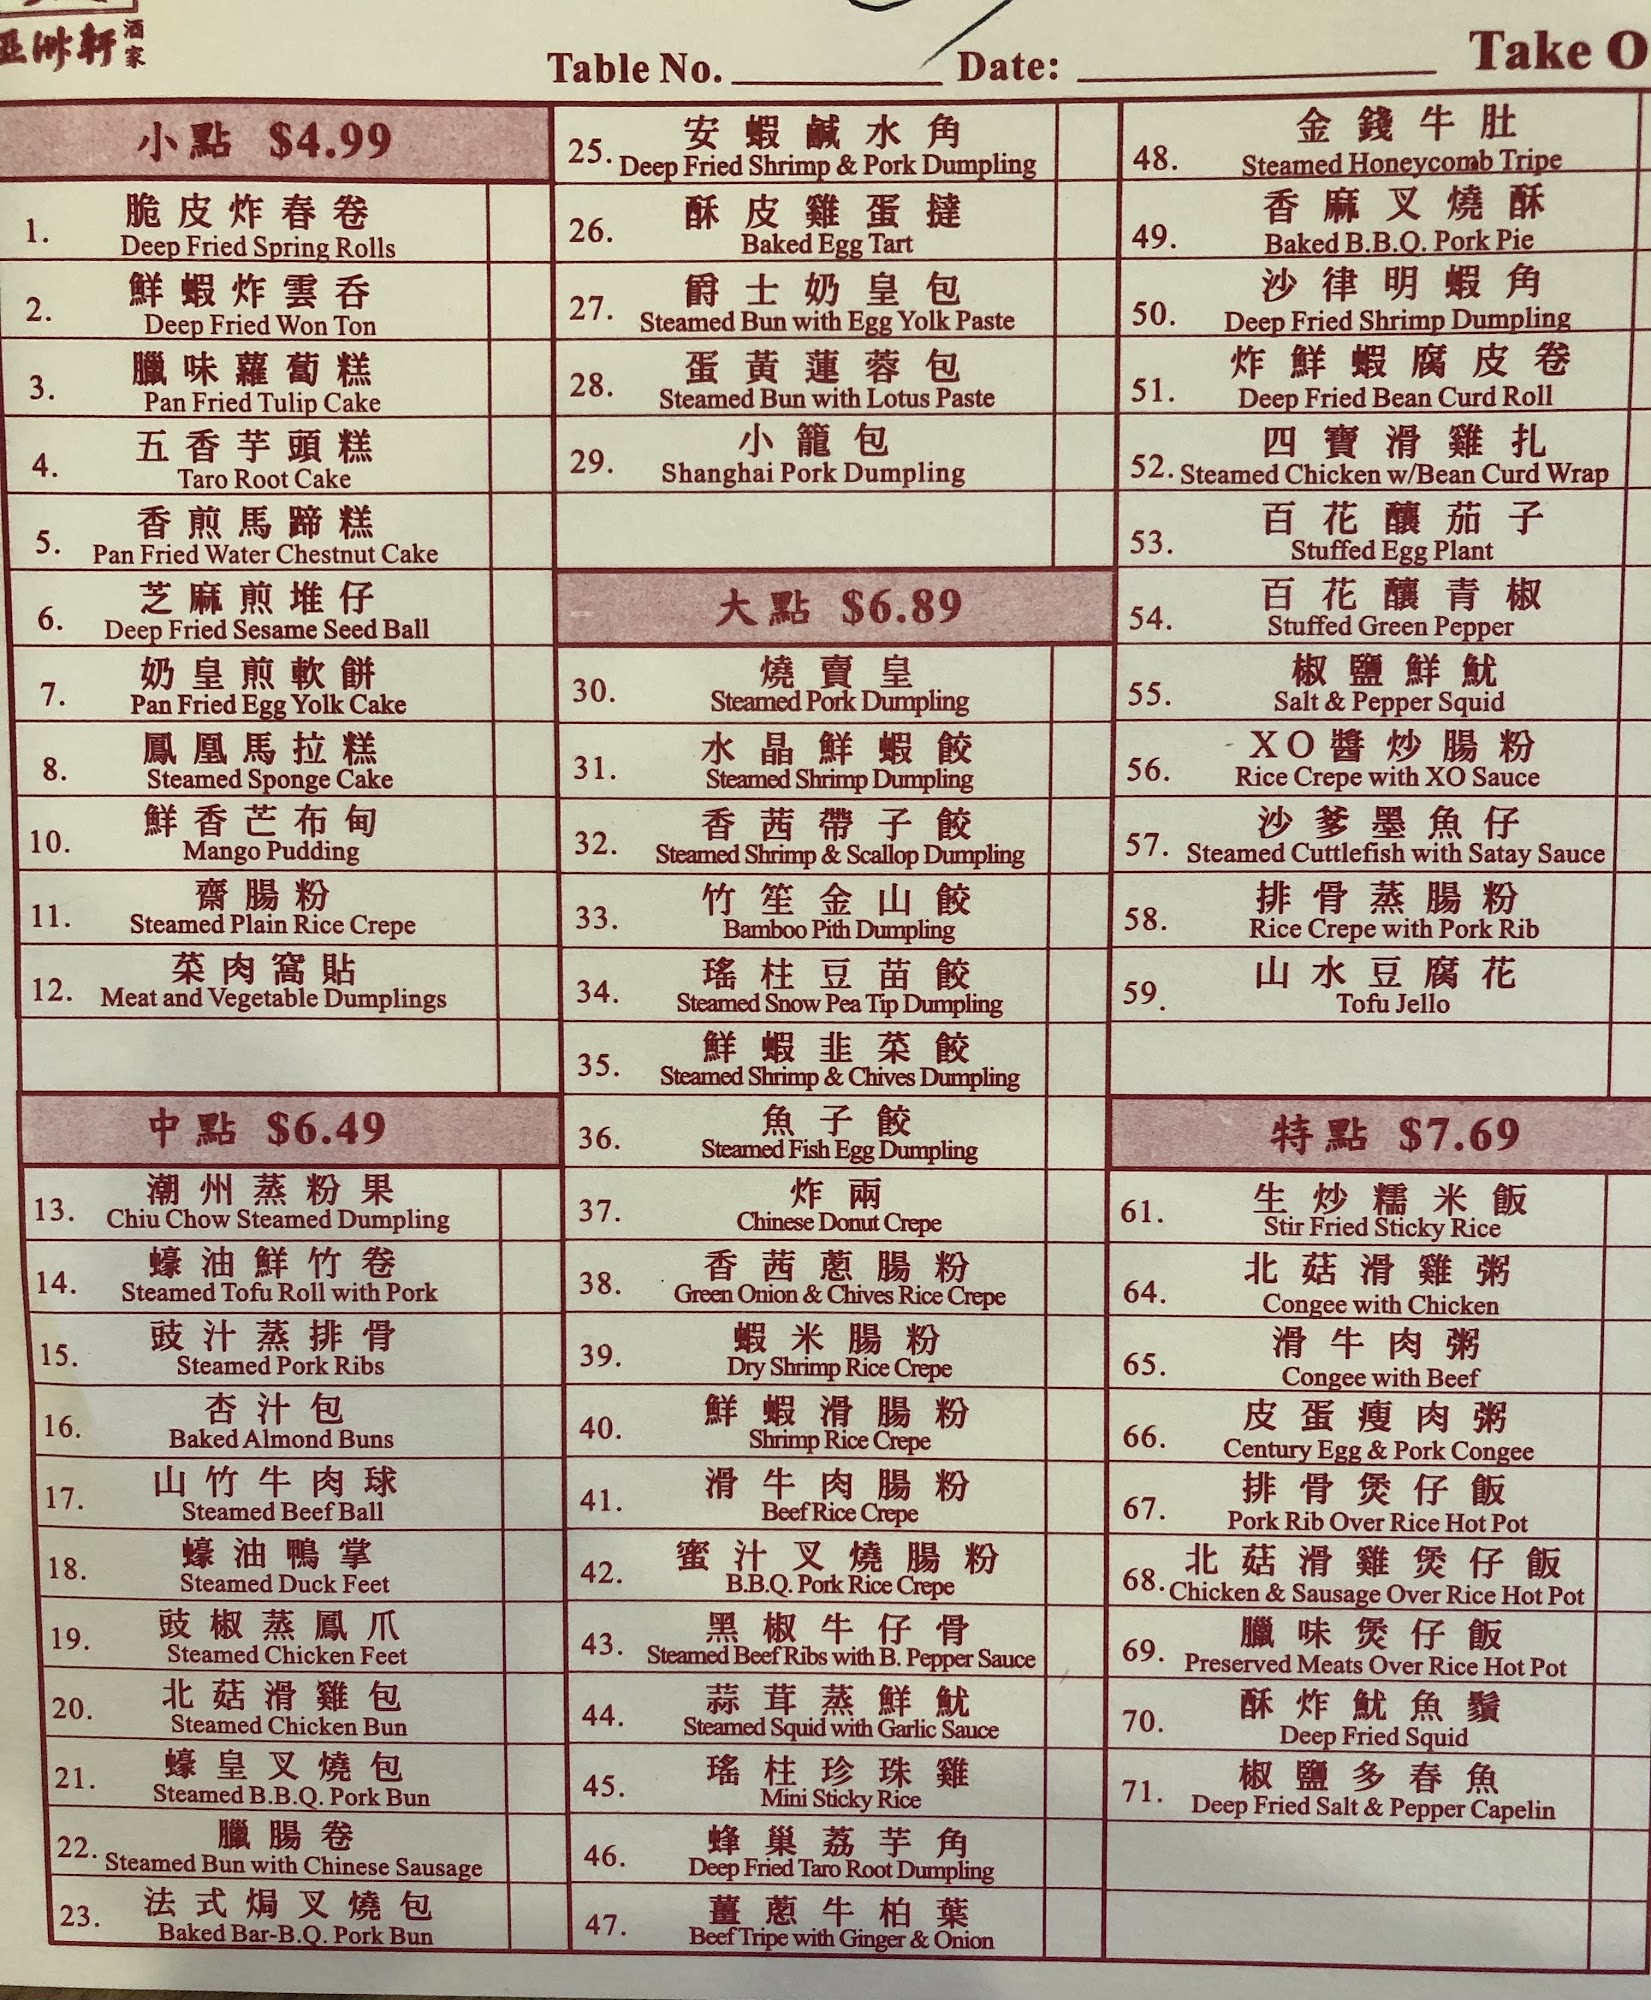 亞洲軒 酒家
Table No. Date: Take O
小點 $4.99
1. 脆皮炸春卷
Deep Fried Spring Rolls
2. 鮮蝦炸雲吞
Deep Fried Won Ton
3. 臘味蘿蔔糕
Pan Fried Tulip Cake
4. 五香芋頭糕
Taro Root Cake
5. 香煎馬蹄糕
Pan Fried Water Chestnut Cake
6. 芝麻煎堆仔
Deep Fried Sesame Seed Ball
7. 奶皇煎軟餅
Pan Fried Egg Yolk Cake
8. 鳳凰馬拉糕
Steamed Sponge Cake
10. 鮮香芒布甸
Mango Pudding
11. 齋腸粉
Steamed Plain Rice Crepe
12. 菜肉窩貼
Meat and Vegetable Dumplings
中點 $6.49
13. 潮州蒸粉果
Chiu Chow Steamed Dumpling
14. 蠔油鮮竹卷
Steamed Tofu Roll with Pork
15. 豉汁蒸排骨
Steamed Pork Ribs
16. 杏汁包
Baked Almond Buns
17. 山竹牛肉球
Steamed Beef Ball
18. 蠔油鴨掌
Steamed Duck Feet
19. 豉椒蒸鳳爪
Steamed Chicken Feet
20. 北菇滑雞包
Steamed Chicken Bun
21. 蠔皇叉燒包
Steamed B.B.Q. Pork Bun
22. 臘腸卷
Steamed Bun with Chinese Sausage
23. 法式焗叉燒包
Baked Bar-B.Q. Pork Bun
25. 安蝦鹹水角
Deep Fried Shrimp & Pork Dumpling
26. 酥皮雞蛋撻
Baked Egg Tart
27. 爵士奶皇包
Steamed Bun with Egg Yolk Paste
28. 蛋黃蓮蓉包
Steamed Bun with Lotus Paste
29. 小籠包
Shanghai Pork Dumpling
大點 $6.89
30. 燒賣皇
Steamed Pork Dumpling
31. 水晶鮮蝦餃
Steamed Shrimp Dumpling
32. 香茜帶子餃
Steamed Shrimp & Scallop Dumpling
33. 竹笙金山餃
Bamboo Pith Dumpling
34. 瑤柱豆苗餃
Steamed Snow Pea Tip Dumpling
35. 鮮蝦韭菜餃
Steamed Shrimp & Chives Dumpling
36. 魚子餃
Steamed Fish Egg Dumpling
37. 炸兩
Chinese Donut Crepe
38. 香茜蔥腸粉
Green Onion & Chives Rice Crepe
39. 蝦米腸粉
Dry Shrimp Rice Crepe
40. 鮮蝦滑腸粉
Shrimp Rice Crepe
41. 滑牛肉腸粉
Beef Rice Crepe
42. 蜜汁叉燒腸粉
B.B.Q. Pork Rice Crepe
43. 黑椒牛仔骨
Steamed Beef Ribs with B. Pepper Sauce
44. 蒜茸蒸鮮魷
Steamed Squid with Garlic Sauce
45. 瑤柱珍珠雞
Mini Sticky Rice
46. 蜂巢荔芋角
Deep Fried Taro Root Dumpling
47. 薑蔥牛柏葉
Beef Tripe with Ginger & Onion
48. 金錢牛肚
Steamed Honeycomb Tripe
49. 香麻叉燒酥
Baked B.B.Q. Pork Pie
50. 沙律明蝦角
Deep Fried Shrimp Dumpling
51. 炸鮮蝦腐皮卷
Deep Fried Bean Curd Roll
52. 四寶滑雞扎
Steamed Chicken w/Bean Curd Wrap
53. 百花釀茄子
Stuffed Egg Plant
54. 百花釀青椒
Stuffed Green Pepper
55. 椒鹽鮮魷
Salt & Pepper Squid
56. XO醬炒腸粉
Rice Crepe with XO Sauce
57. 沙爹墨魚仔
Steamed Cuttlefish with Satay Sauce
58. 排骨蒸腸粉
Rice Crepe with Pork Rib
59. 山水豆腐花
Tofu Jello
特點 $7.69
61. 生炒糯米飯
Stir Fried Sticky Rice
64. 北菇滑雞粥
Congee with Chicken
65. 滑牛肉粥
Congee with Beef
66. 皮蛋瘦肉粥
Century Egg & Pork Congee
67. 排骨煲仔飯
Pork Rib Over Rice Hot Pot
68. 北菇滑雞煲仔飯
Chicken & Sausage Over Rice Hot Pot
69. 臘味煲仔飯
Preserved Meats Over Rice Hot Pot
70. 酥炸魷魚鬚
Deep Fried Squid
71. 椒鹽多春魚
Deep Fried Salt & Pepper Capelin